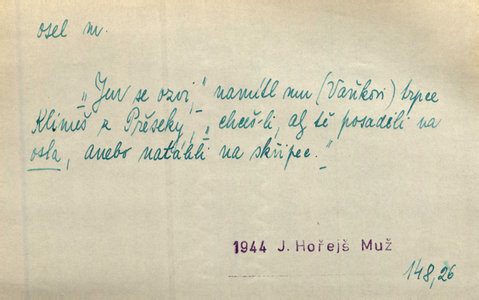 osel m.
„Jen se ozvi," namítl mu (Vaňkovi) trpce
Klimeš z Přeseky, „chceš-li, ať tě posadili na
osla, anebo natáhli na skřipec."
1944 J. Hořejš Muž
148,26